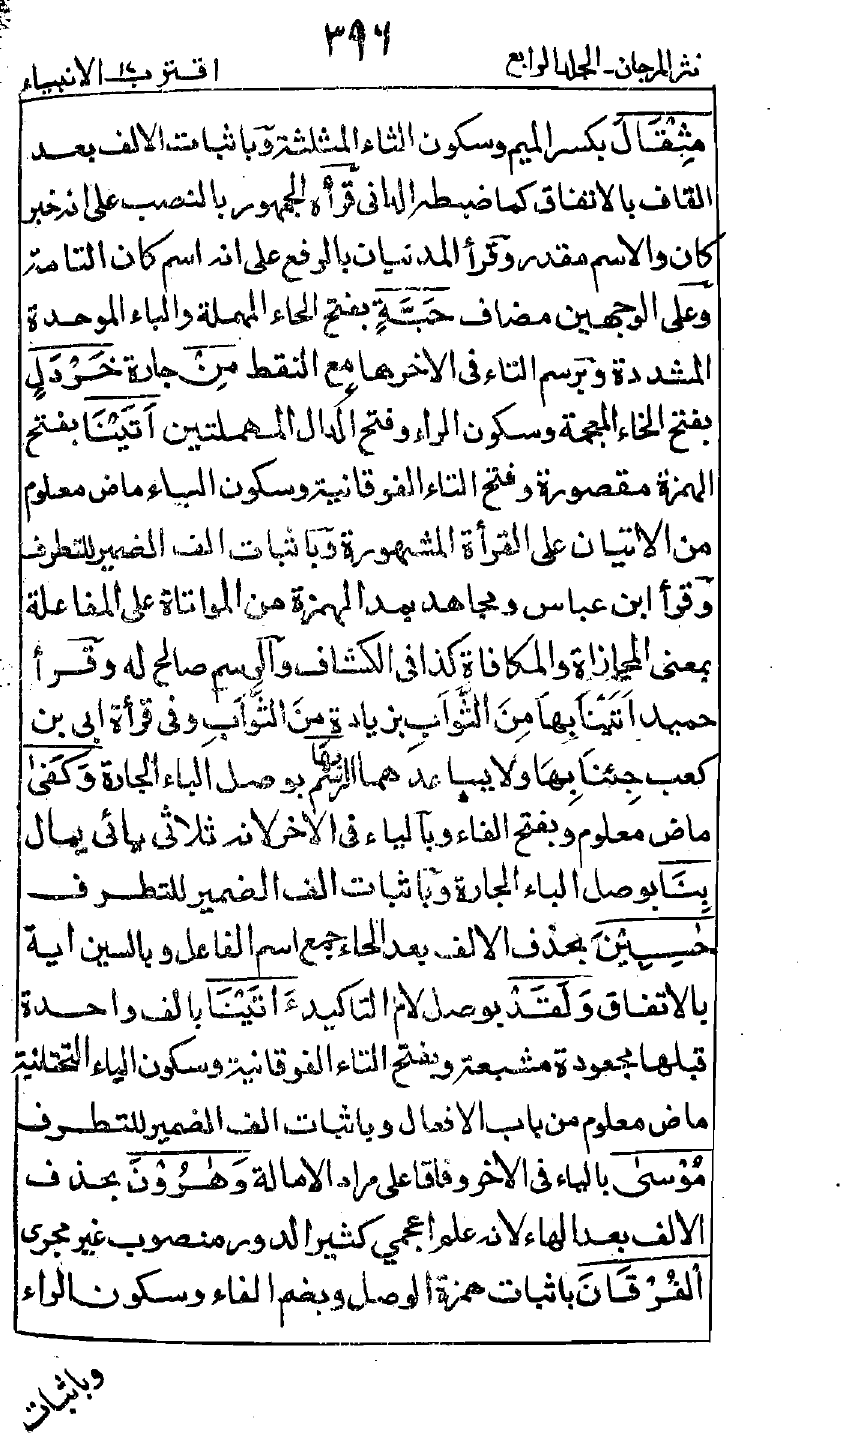 ٣٩٦
نثر المرجان - الجلد الرابع
اقترب ١٧ - الانبياء
مِثْقَالَ بكسر الميم وسكون الثاء المثلثة وباثبات الالف بعد
القاف بالاتفاق كما ضبطه الدانى قرأه الجمهور بالنصب على انه خبر
كان والاسم مقدر وقرأ المدنيان بالرفع على انه اسم كان التامة
وعلى الوجهين مضاف حَبَّةٍ بفتح الحاء المهملة والباء الموحدة
المشددة وبرسم التاء فى الاخر هاء مع النقط مِنْ جارة خَرْدَلٍ
بفتح الخاء المعجمة وسكون الراء وفتح الدال المهملتين اَتَيْنَا بفتح
الهمزة مقصورة وفتح التاء الفوقانية وسكون الياء ماض معلوم
من الاتيان على القرأة المشهورة وباثبات الف الضمير للتطرف
وقرأ ابن عباس ومجاهد بمد الهمزة من المواتاة على المفاعلة
بمعنى المجازاة والمكافاة كذا فى الكشاف والرسم صالح له وقرأ
حميد اَثَبْنَا بِهَا مِنَ الثَّوَابِ بزيادة مِنَ الثَّوَابِ وفى قرأة ابى بن
كعب جِئْنَا بِهَا ولا يساعدهما الرسم بِهَا بوصل الباء الجارة وَكَفٰى
ماض معلوم وبفتح الفاء وبالياء فى الاخر لانه ثلاثى يائى يمال
بِنَا بوصل الباء الجارة وباثبات الف الضمير للتطرف
حٰسِبِيْنَ بحذف الالف بعد الحاء جمع اسم الفاعل وبالسين اية
بالاتفاق وَلَقَدْ بوصل لام التاكيد ءَاتَيْنَا بالف واحدة
قبلها مجعودة مشبعة وبفتح التاء الفوقانية وسكون الياء التحتانية
ماض معلوم من باب الافعال وباثبات الف الضمير للتطرف
مُوْسٰى بالياء فى الاخر وفاقا على مراد الامالة وَهٰرُوْنَ بحذف
الالف بعد الهاء لانه علم اعجمي كثير الدور منصوب غير مجرى
الفُرْقَانَ باثبات همزة الوصل وبضم الفاء وسكون الراء
وباثبات